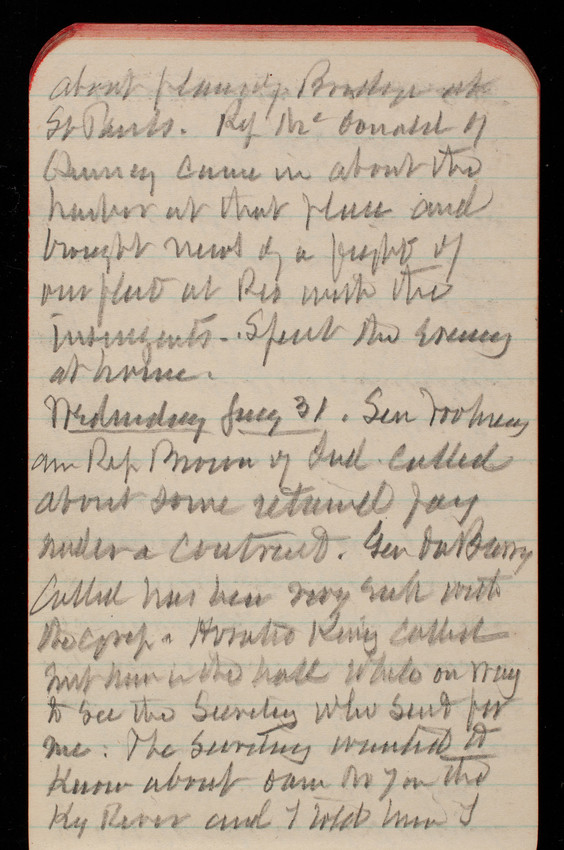 about placing Bridge at
St Pauls. Rep McDonald of
Quincy came in about the
harbor at that place and
brought news of a fight of
our fleet at Rio with the
insurgents. Spent the evening
at home.
Wednesday Jany 31. Sen Voorhees
an Rep Brown of Ind. called
about some retained pay
under a contract. Gen DuBarry
Called has been very sick with
the grip. Horatio King called
met him in the hall while on way
to see the Secretary who sent for
me. The Secretary wanted to
know about Dam No 7 on the
Ky River and I told him I